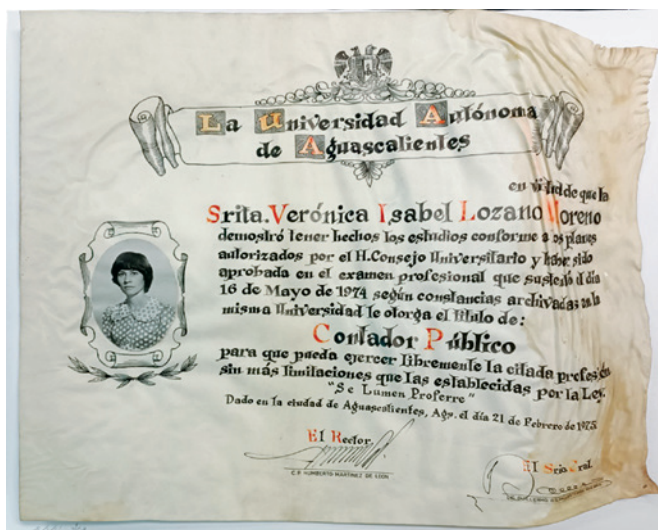 La Universidad Autónoma
de Aguascalientes
en virtud de que la
Srita. Verónica Isabel Lozano Moreno
demostró tener hechos los estudios conforme a los planes
autorizados por el H. Consejo Universitario y haber sido
aprobada en el examen profesional que sustentó el día
16 de Mayo de 1974 según constancias archivadas en la
misma Universidad le otorga el título de:
Contador Público
para que pueda ejercer libremente la citada profesión
sin más limitaciones que las establecidas por la Ley.
"Se Lumen Proferre"
Dado en la ciudad de Aguascalientes, Ags. el día 21 de Febrero de 1975.
El Rector.
C.P. HUMBERTO MARTINEZ DE LEON
El Srio. Gral.